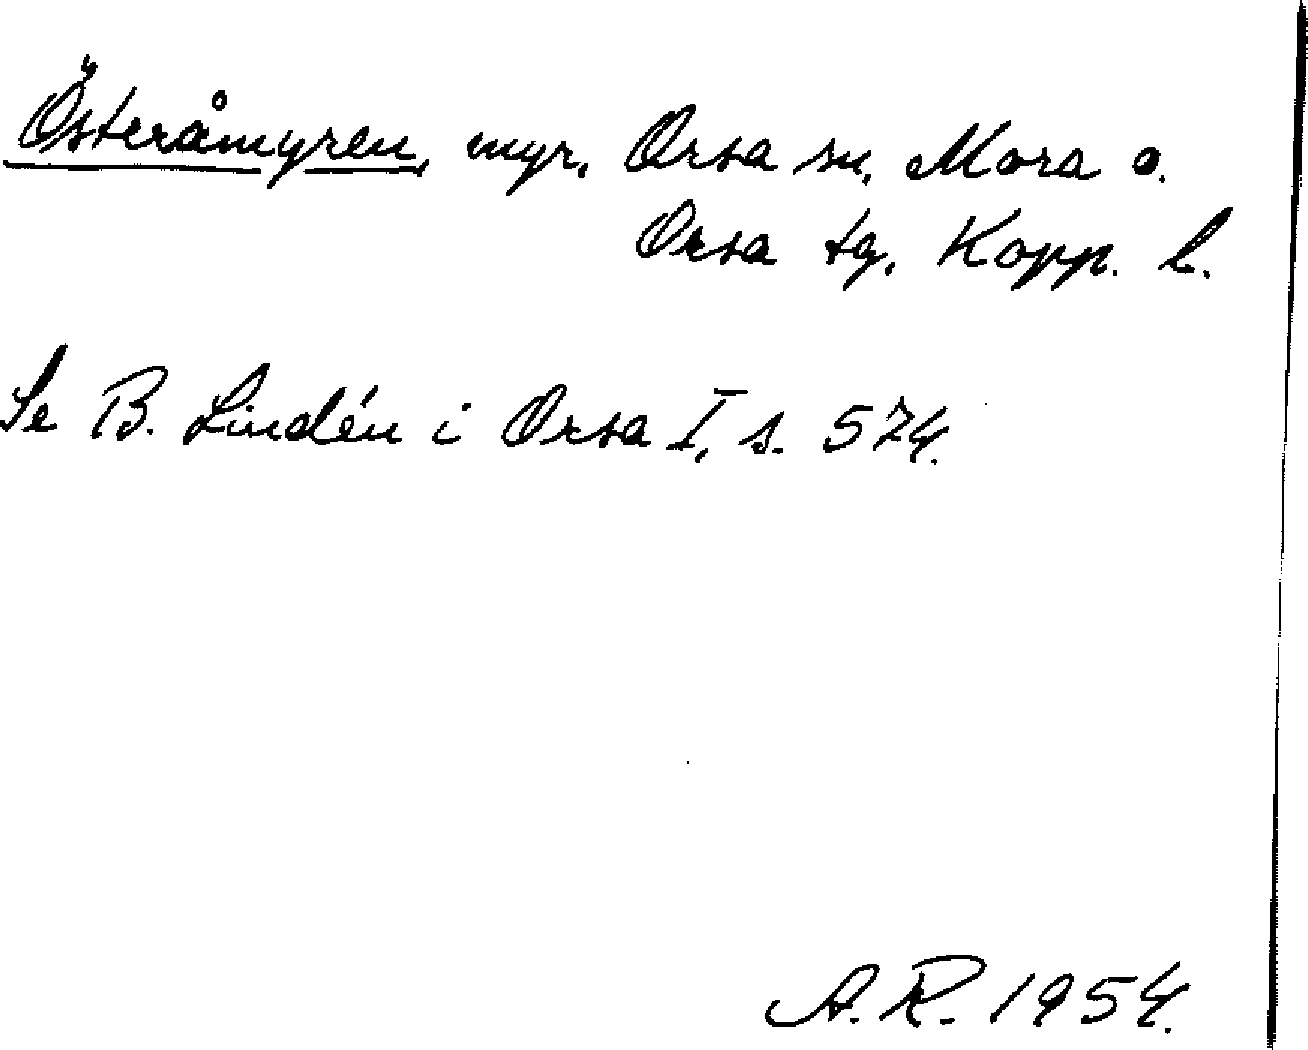 Österåmyren, myr, Orsa sn, Mora o.
Orsa tg, Kopp. l.
Se B. Lindén i Orsa I, s. 574.
A. R. 1954.